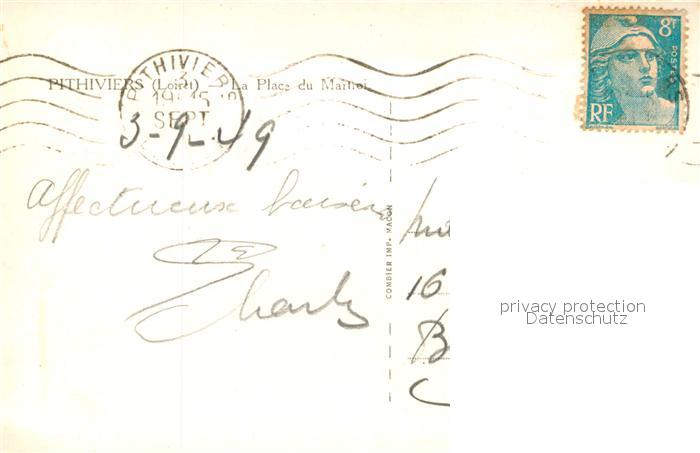 PITHIVIERS (Loiret) - La Place du Martroi
PITHIVIERS
3
19 15
SEPT
8F
POSTES
RF
3-9-49
Affectueux baisers
Charly
COMBIER IMP. MACON
16
B
privacy protection
Datenschutz